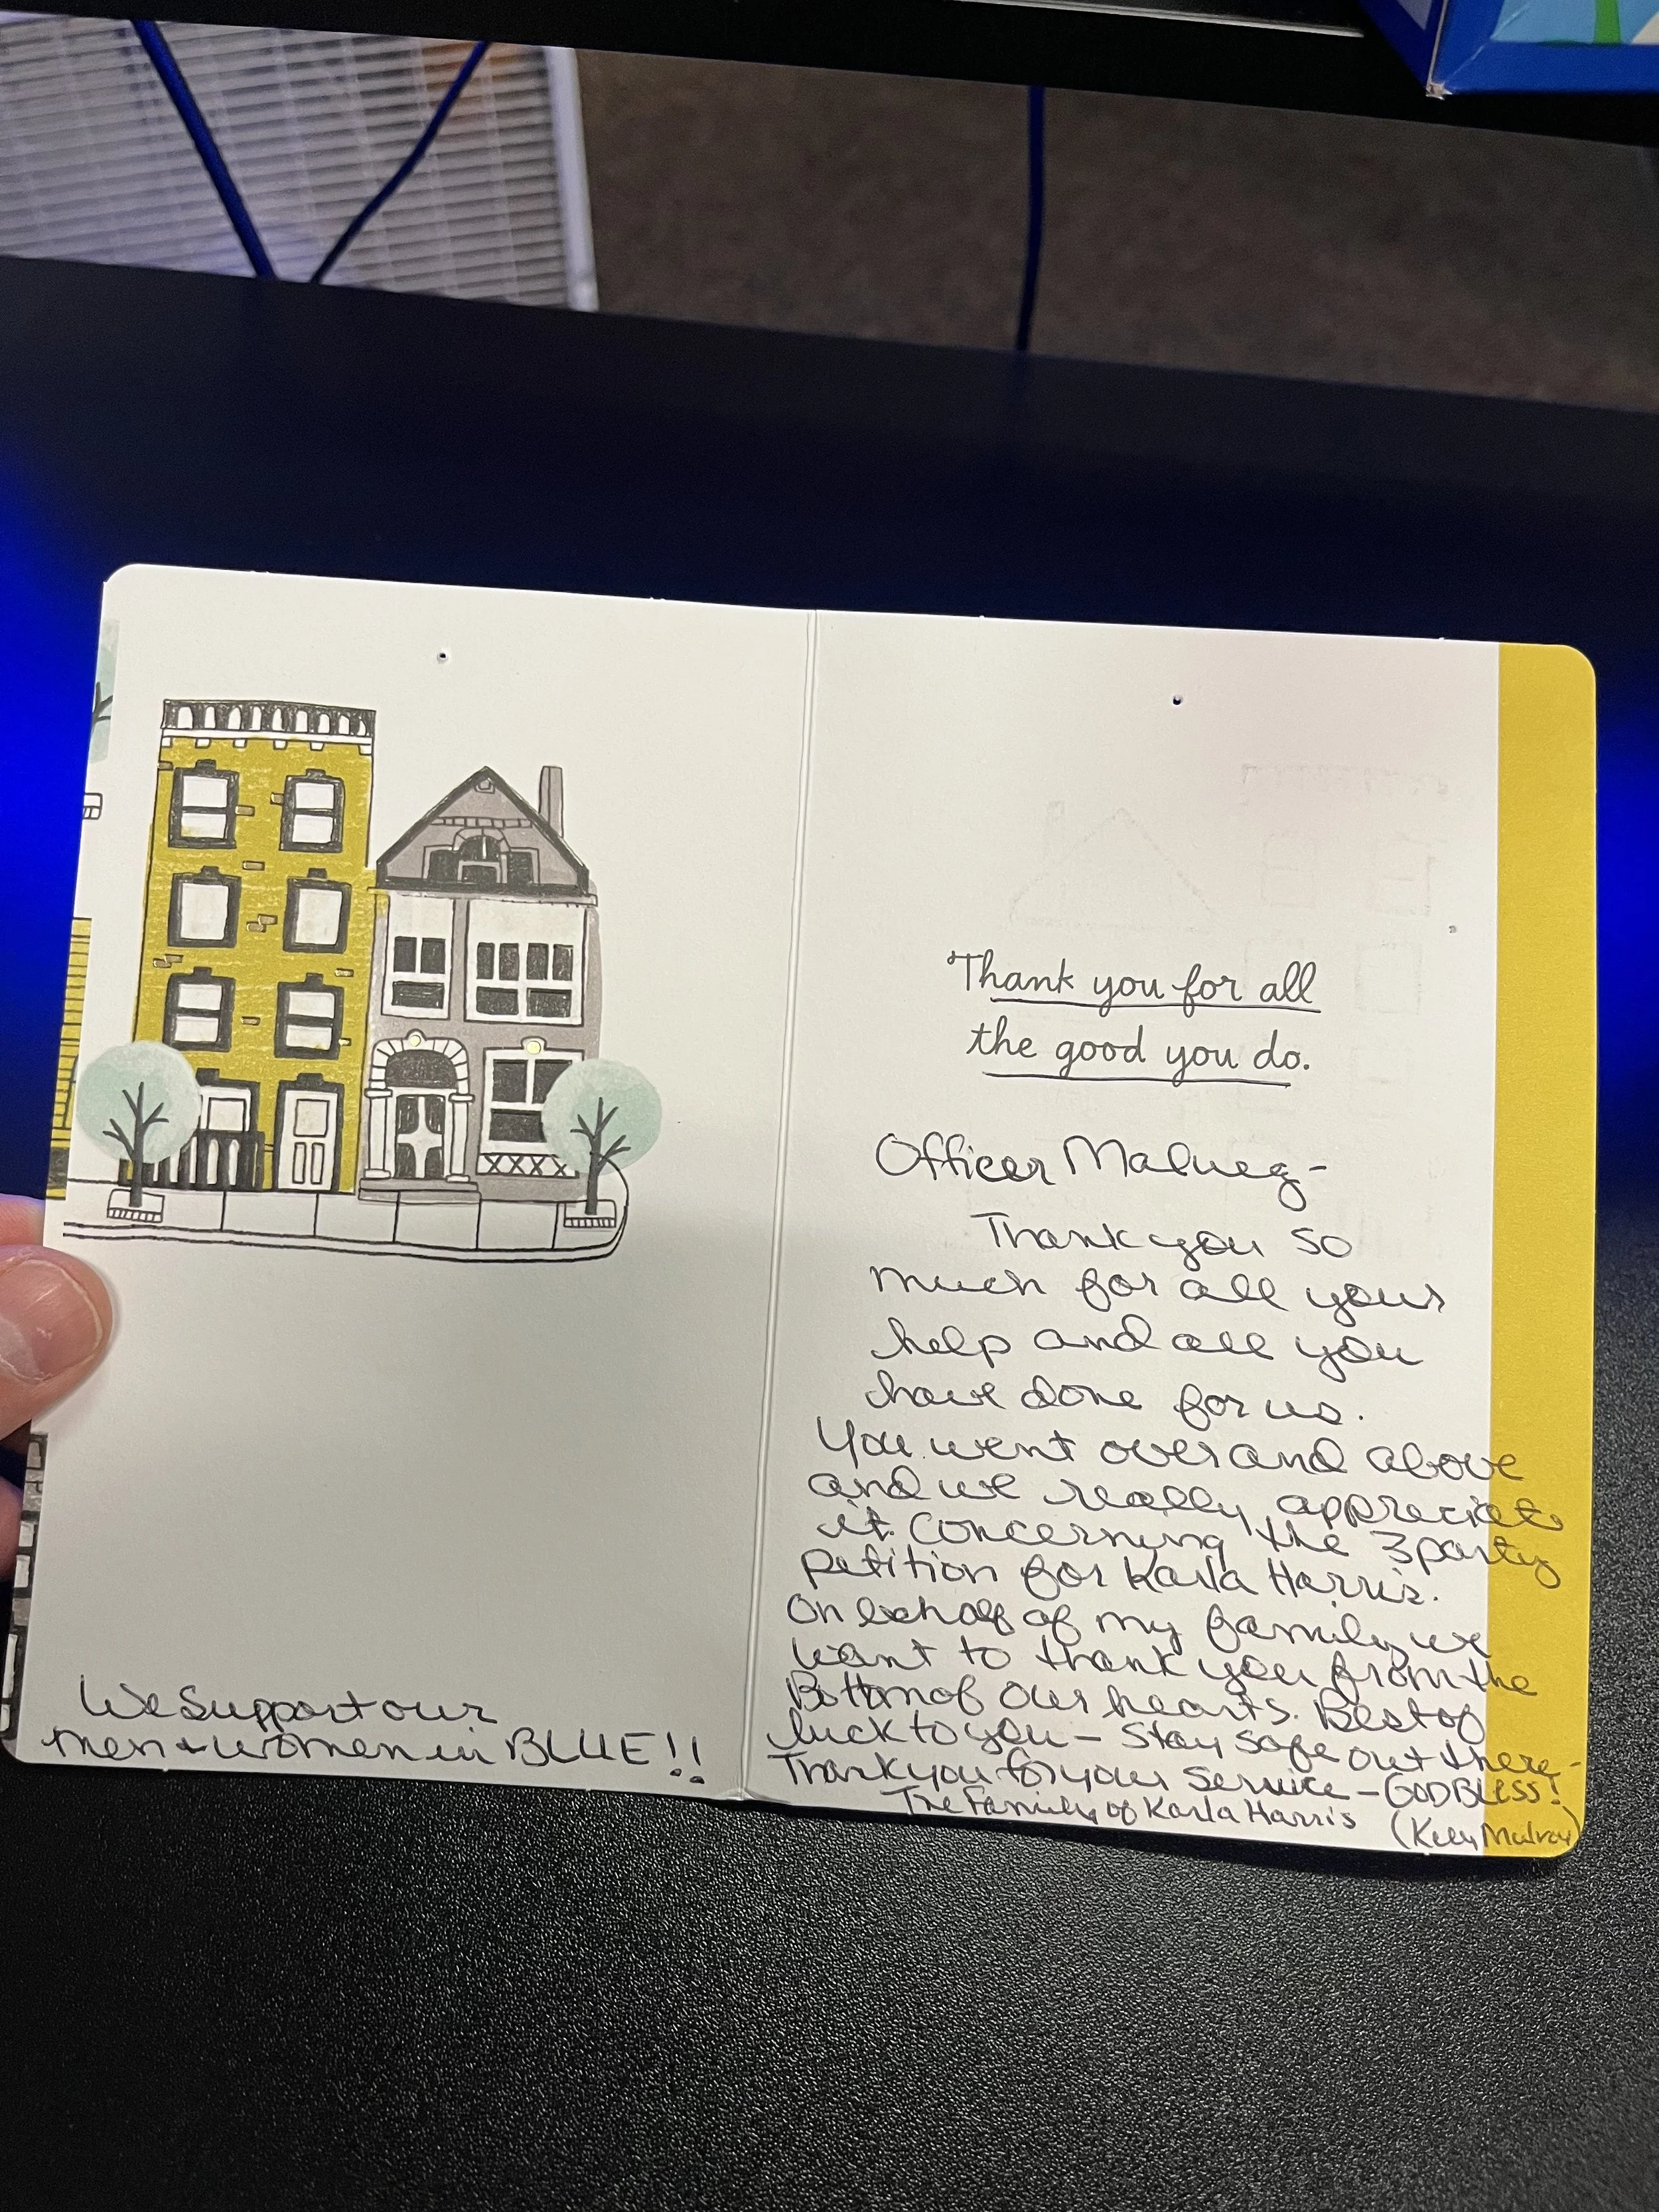 We Support our
men + women in BLUE!!
Thank you for all
the good you do.
Officer Malueg-
Thank you so
much for all your
help and all you
have done for us.
You went over and above
and we really appreciate
it. Concerning the 3party
petition for Karla Harris.
On behalf of my family we
want to thank you from the
Bottom of our hearts. Best of
luck to you - Stay safe out there-
Thank you for your service - GOD BLESS!
The Family of Karla Harris